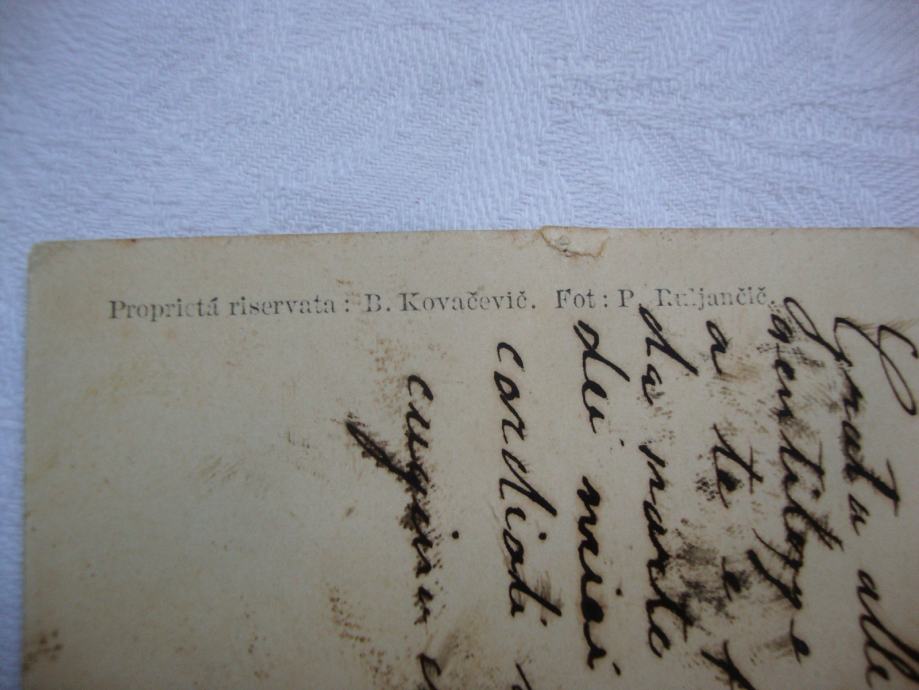 Proprietá riservata: B. Kovačević. Fot: P. Ruljančič.
Grata alla
gentilezza
a te e
da parte
dei miei
cordiali